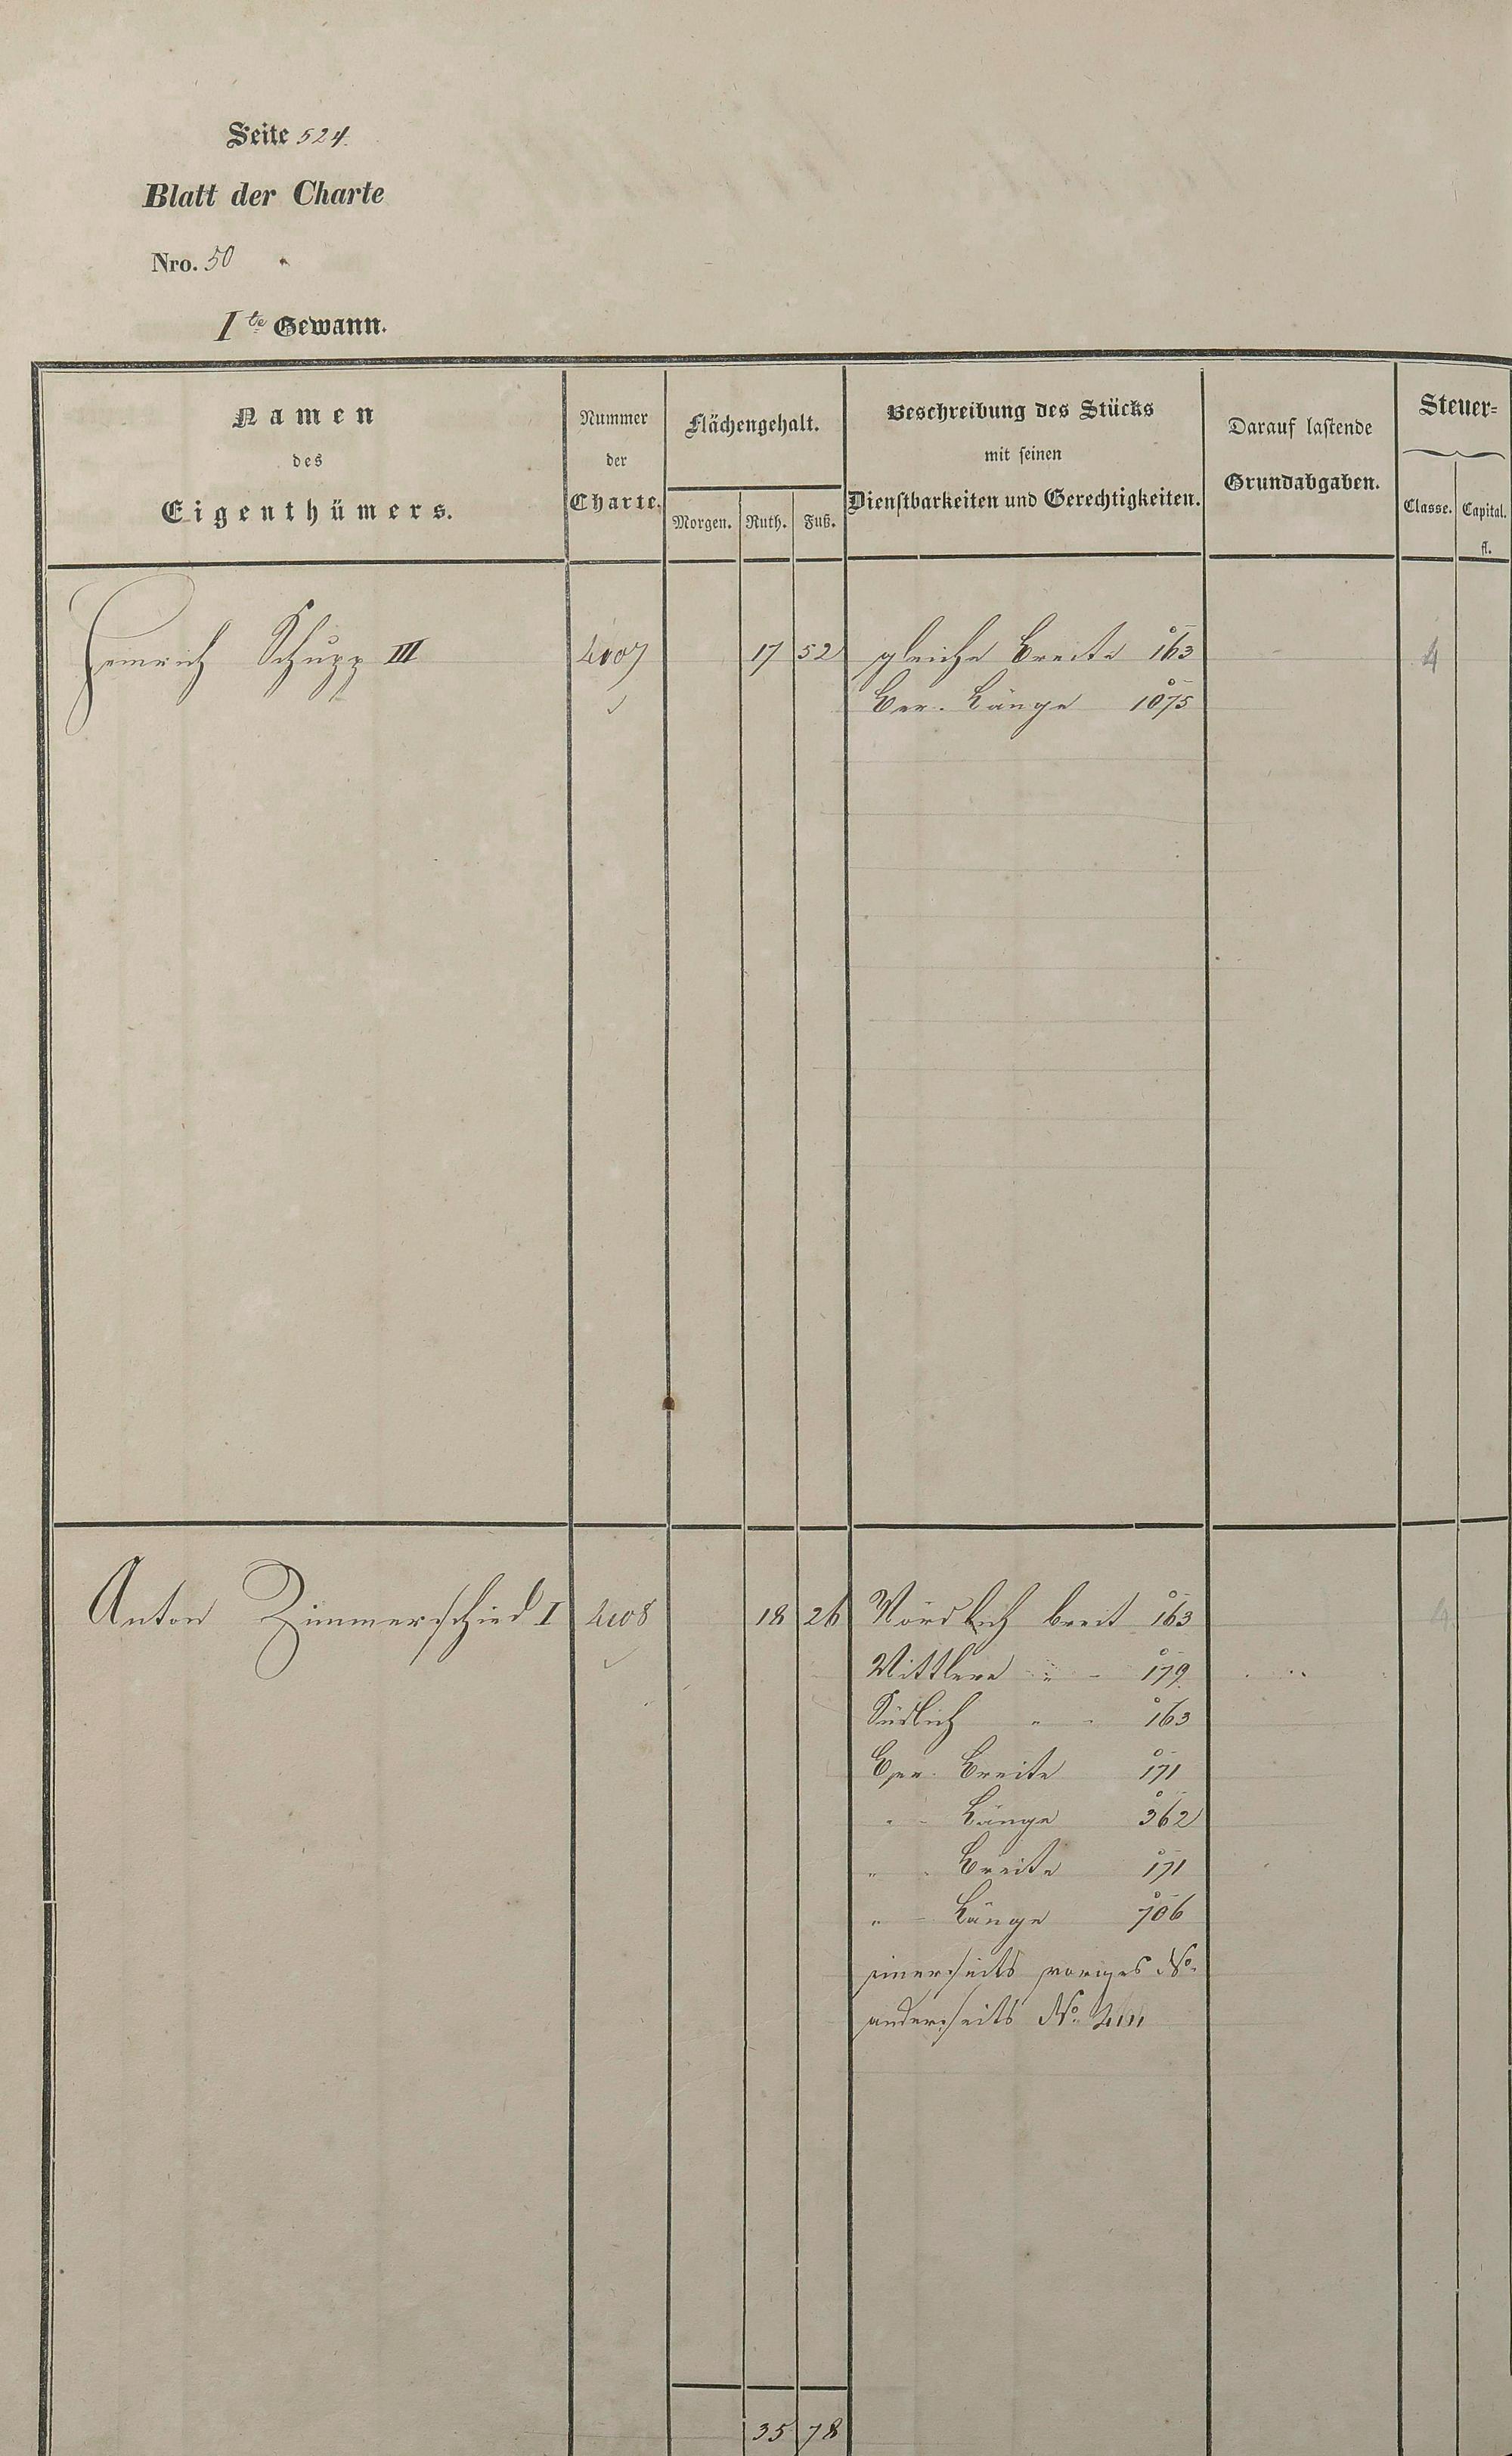 Seite 524.
Blatt der Charte
Nro. 50
Ite Gewann.
Namen
des
Eigenthümers.
Nummer
der
Charte.
Flächengehalt.
Morgen. Ruth. Fuß.
Beschreibung des Stücks
mit seinen
Dienstbarkeiten und Gerechtigkeiten.
Darauf lastende
Grundabgaben.
Steuer=
Classe. Capital.
fl.
Heinrich Schupp III 4107 17 52 gleiche Breite 163 4
Ber. Länge 1075
Anton Zimmerschied I 4108 18 26 Nördlich breit 163 4
Mittlere " - 179
Südlich " - 163
Ber. Breite 171
" - Länge 362
" - Breite 171
" - Länge 706
einerseits voriges No.
anderseits No. 4111
35 78